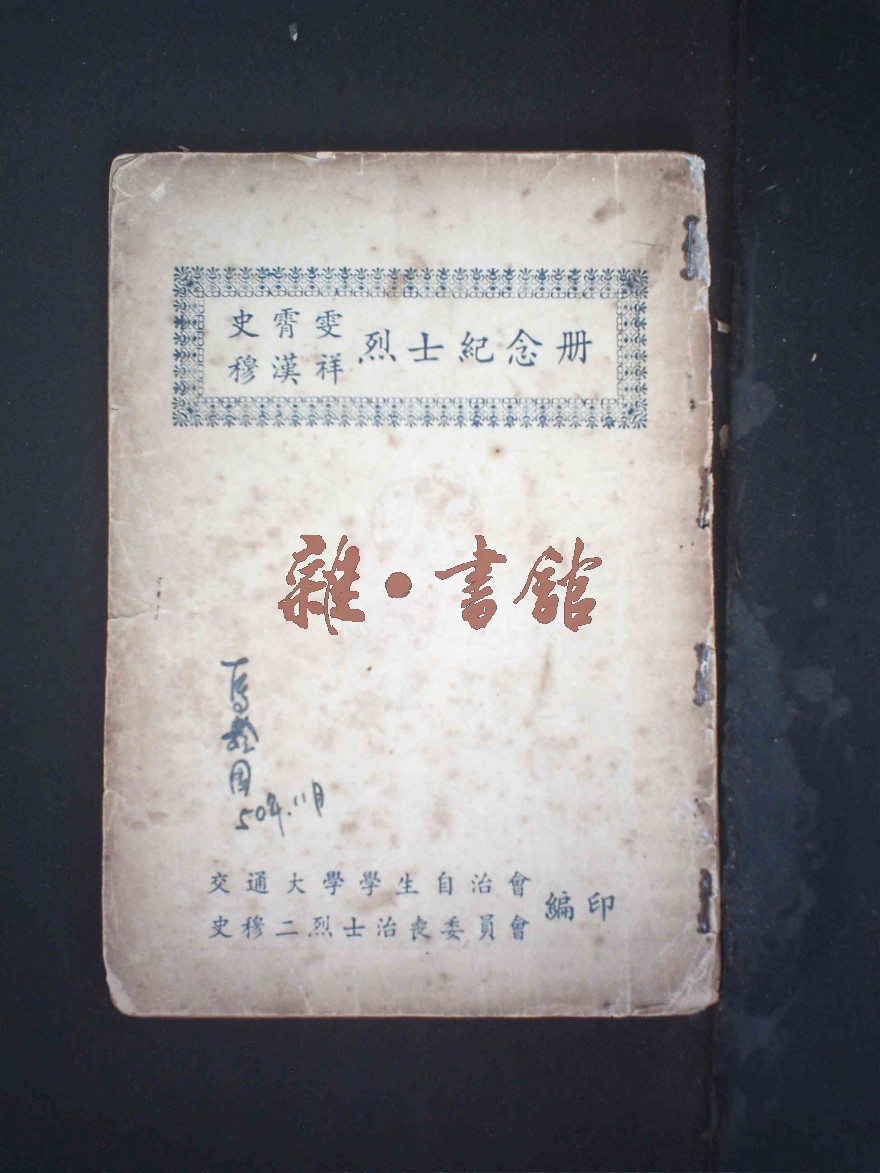 史霄雯
穆漢祥
烈士紀念册
雜·書館
50年.11月
交通大學學生自治會
史穆二烈士治喪委員會
編印